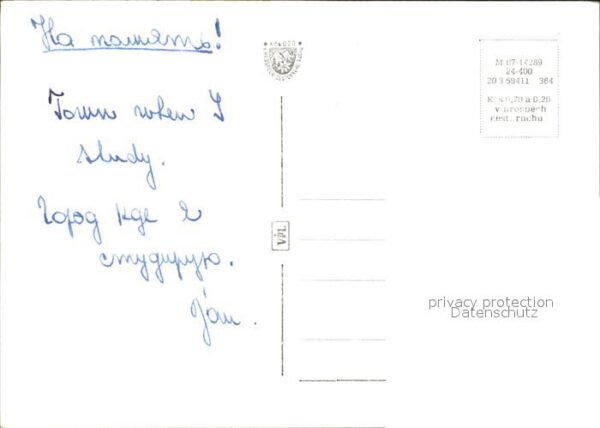 На память!
Town when I
study.
Город кде я
студирую.
Ján.
Kčs 0,20
VPL
M 07-14289
24-400
20 3 59411 364
Kčs 0,70 a 0,20
v prospěch
cest. ruchu
privacy protection
Datenschutz